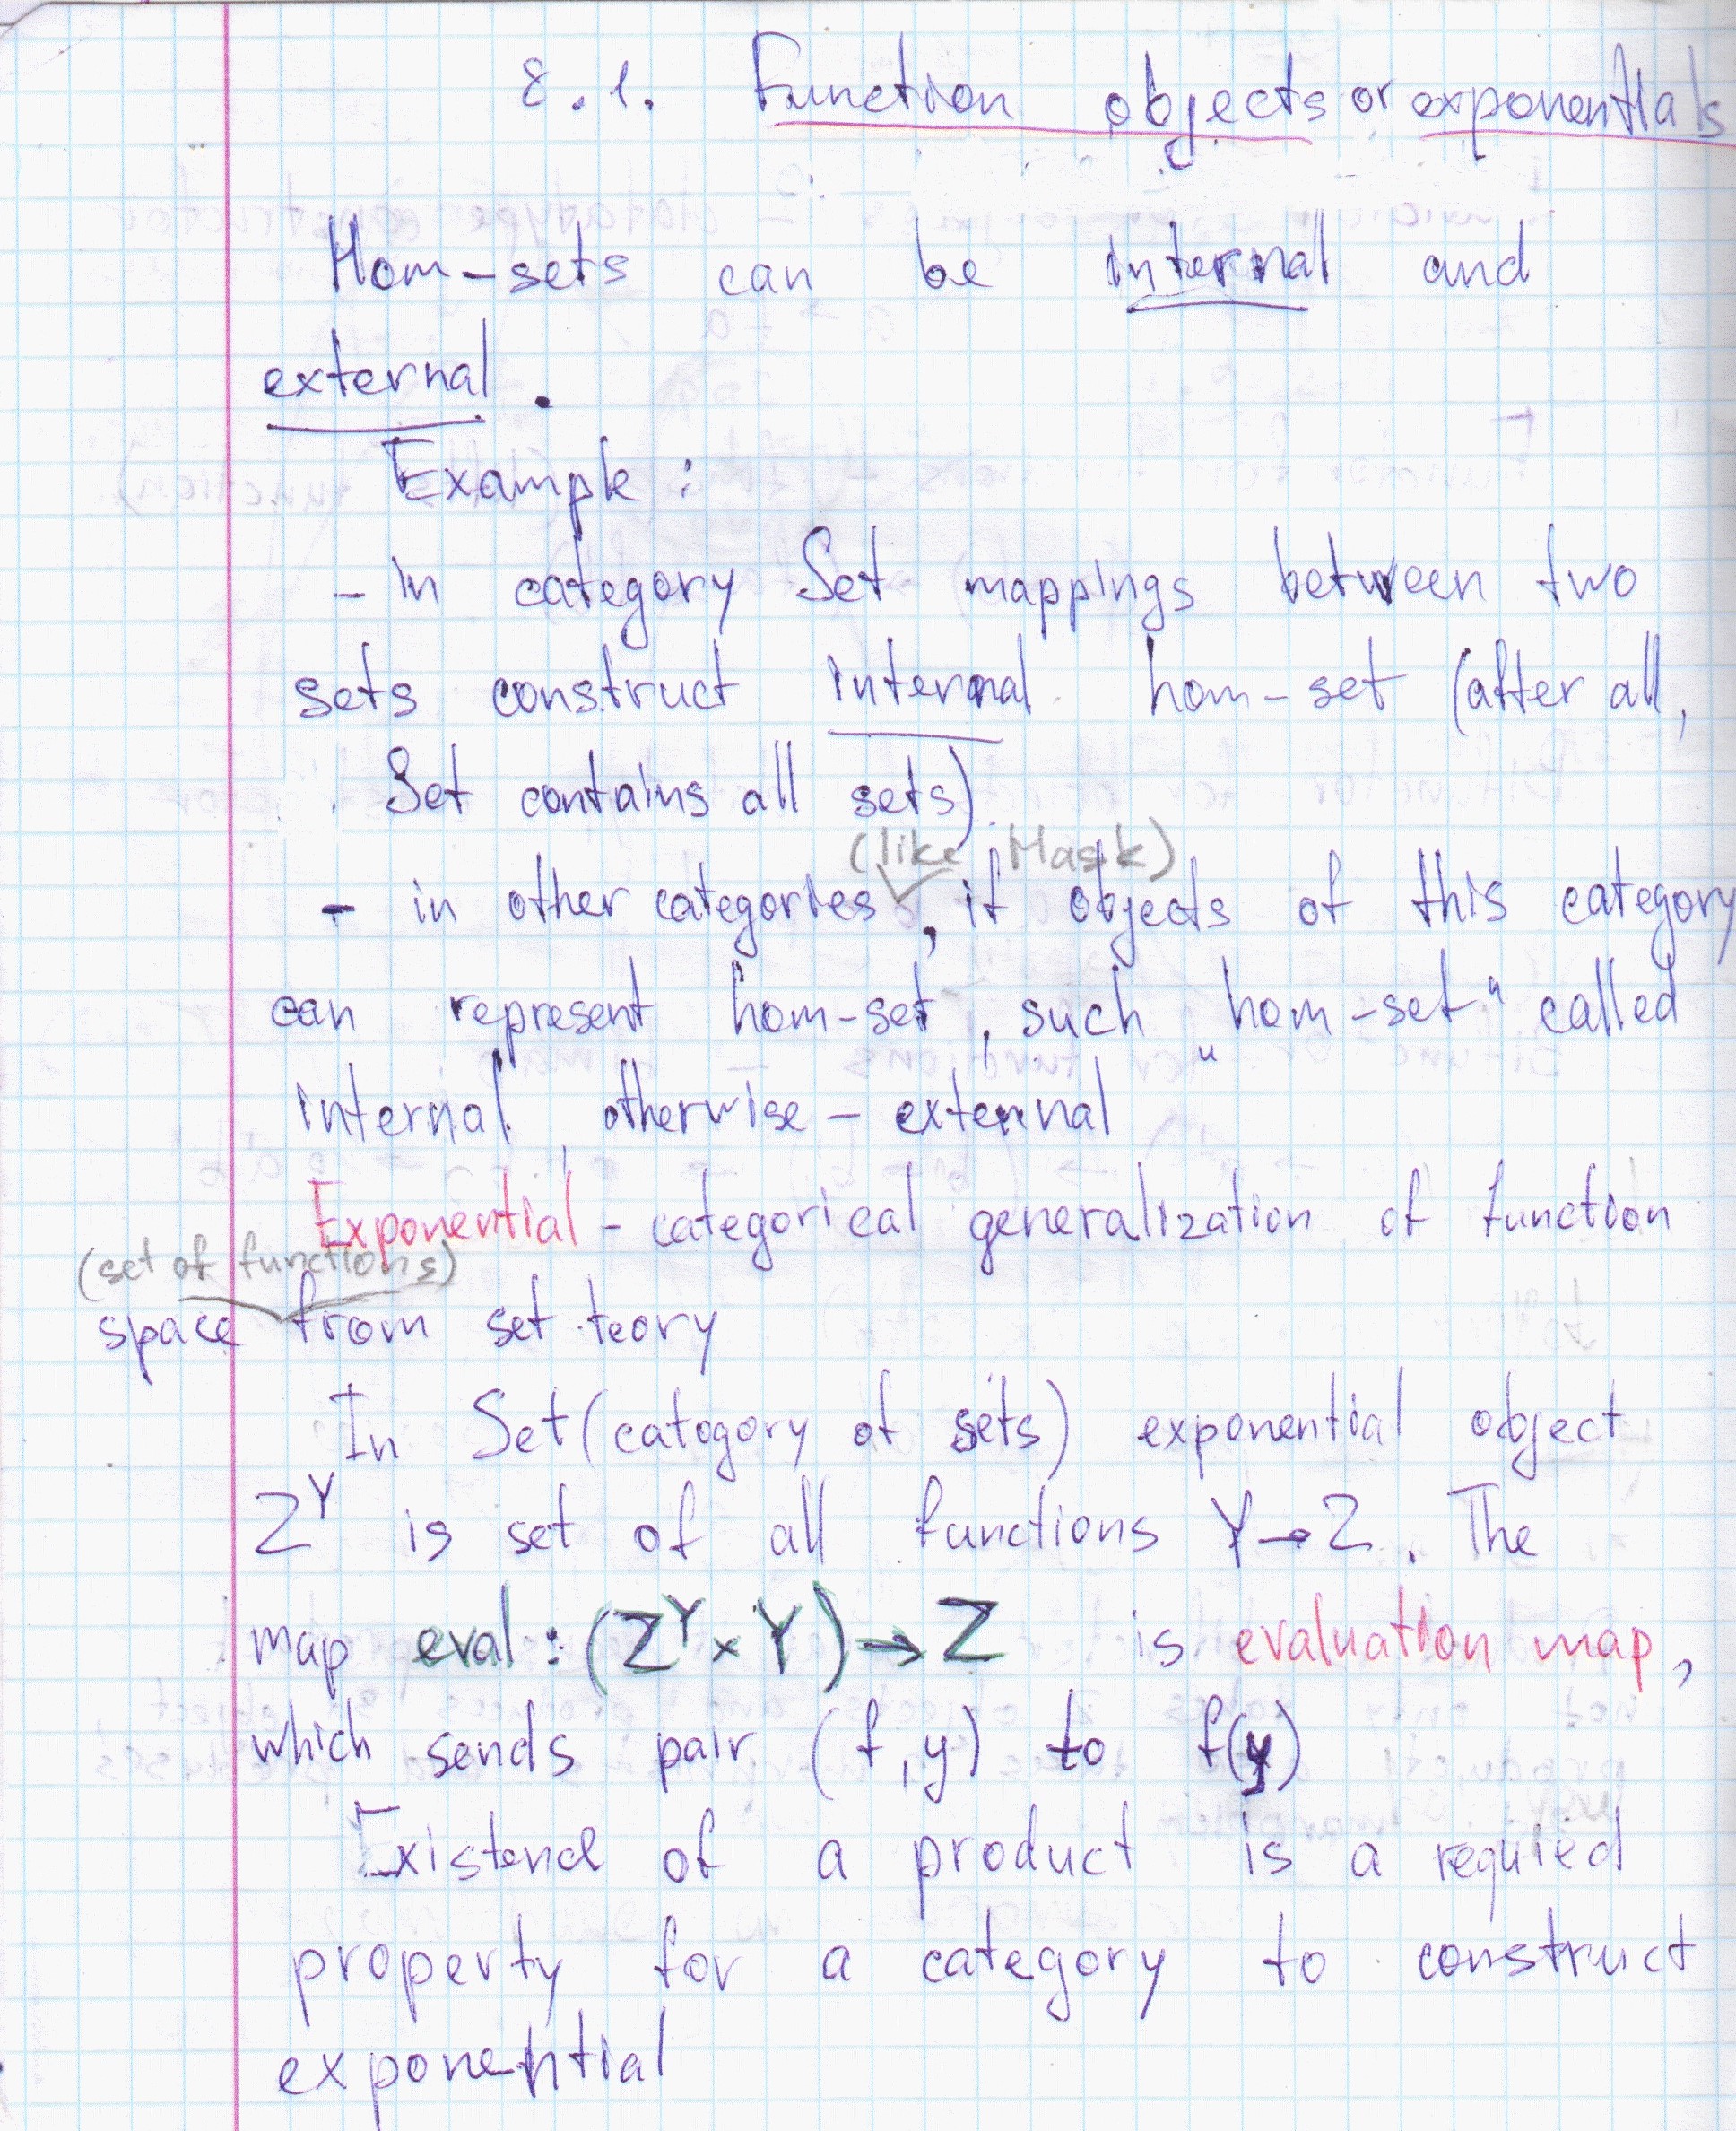 8.1. Function objects or exponentials
Hom-sets can be internal and
external.
Example:
- in category Set mappings between two
sets construct internal hom-set (after all,
Set contains all sets).
(like Hask)
- in other categories, if objects of this category
can represent hom-set, such "hom-set" called
internal, otherwise - external
Exponential - categorical generalization of function
(set of functions)
space from set teory
In Set (catogory of sets) exponential object
Z^Y is set of all functions Y→Z. The
map eval: (Z^Y × Y) → Z is evaluation map,
which sends pair (f, y) to f(y)
Existence of a product is a requied
property for a category to construct
exponential